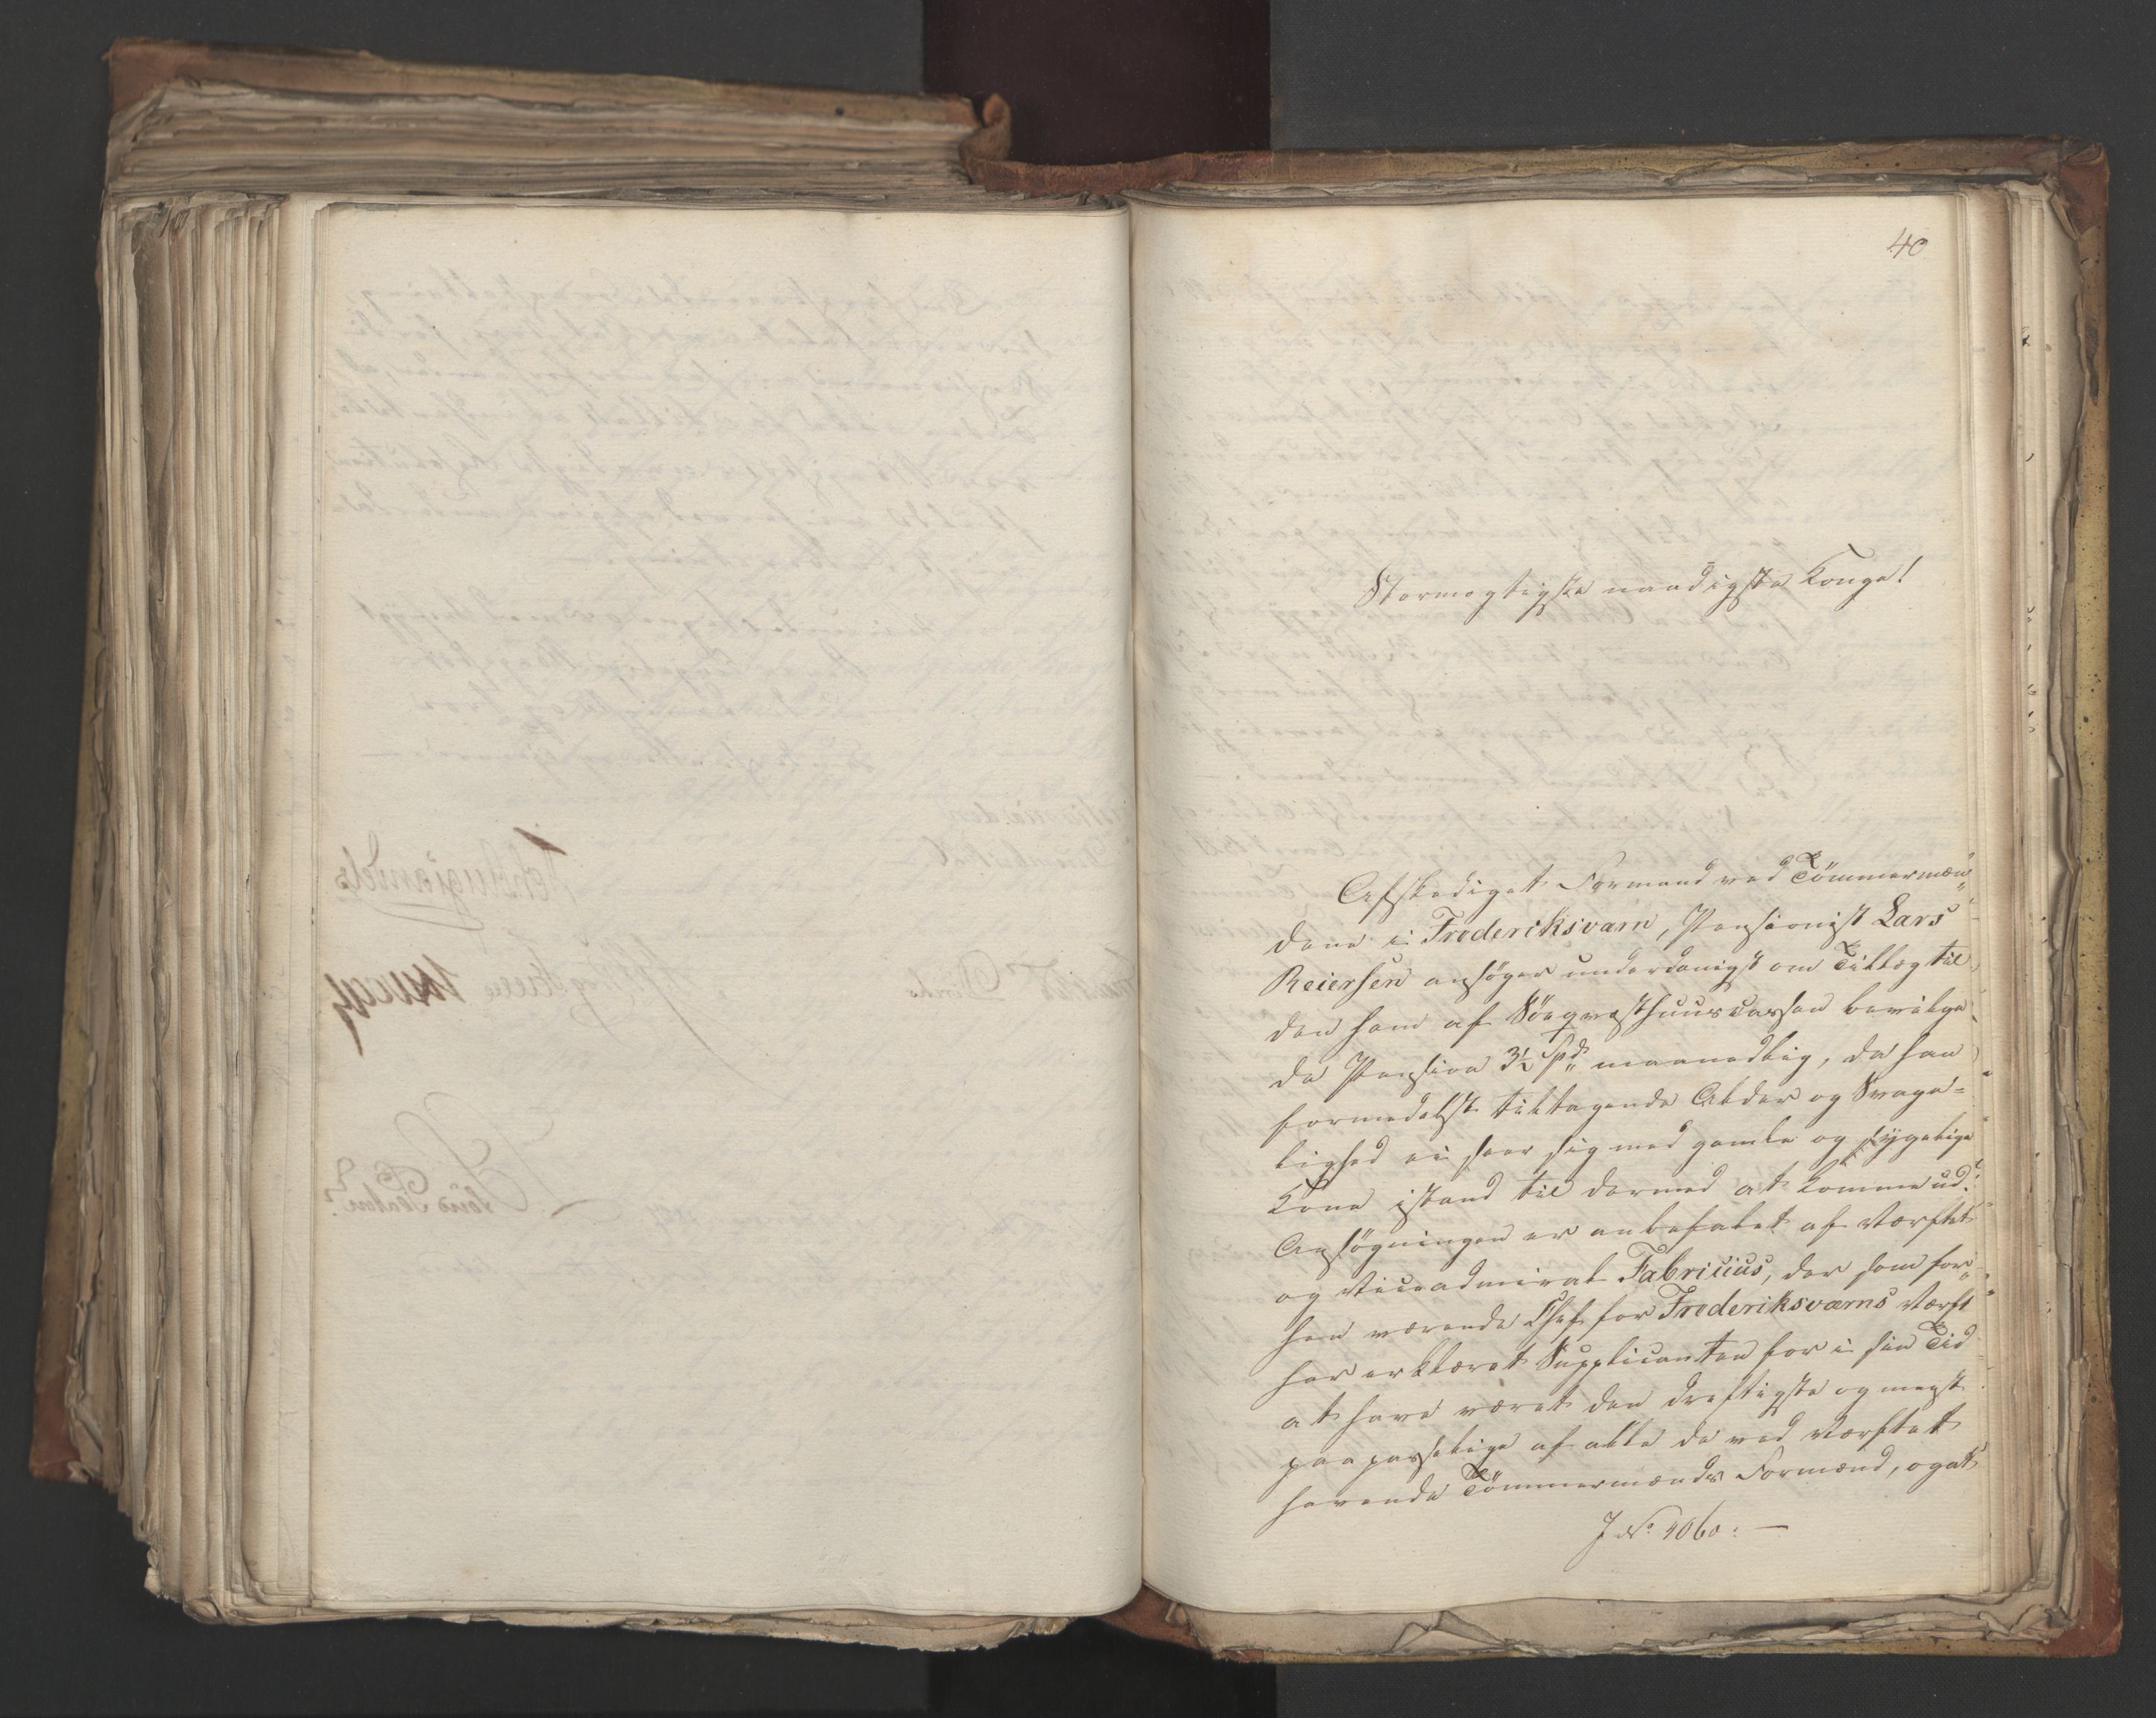 40
Stormægtigste naadigste Konge!
Afskediget Formand ved Tömmermæn„
dene i Frederiksværn, Pensionist Lars
Reiersen ansöger underdanigst om Tillæg til
den ham af Söeqvæsthuuscassen bevilge
de Pension 3½ Spd. maanedlig, da han
formedelst tiltagende Alder og Svage=
lighed ei seer sig med gamle og sygelige
Kone istand til dermed at komme ud.
Ansögningen er anbefalet af Værftet
og Viceadmiral Fabricius, der som for„
hen værende Chef for Frederiksværns Værft
har erklæret Supplicanten for i sin Tid
at have været den dreftigste og meest
paapasselige af alle de ved Værftet
havende Tömmermænds Formænd, og at
J No. 4060. —